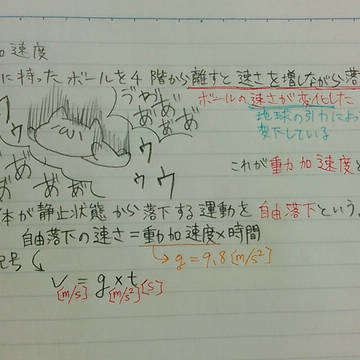 加速度
に持ったボールを4階から離すと速さを増しながら落
ボールの速さが変化した
地球の引力によっ
落下している
ぎゃあ
ああ
あ゛あ゛
あ゛あ゛あ゛
ウウ
ウウ
これが重力加速度と
体が静止状態から落下する運動を自由落下という。
自由落下の速さ=重力加速度×時間
記号
g=9.8[m/s²]
v = g×t
[m/s] [m/s²] [s]